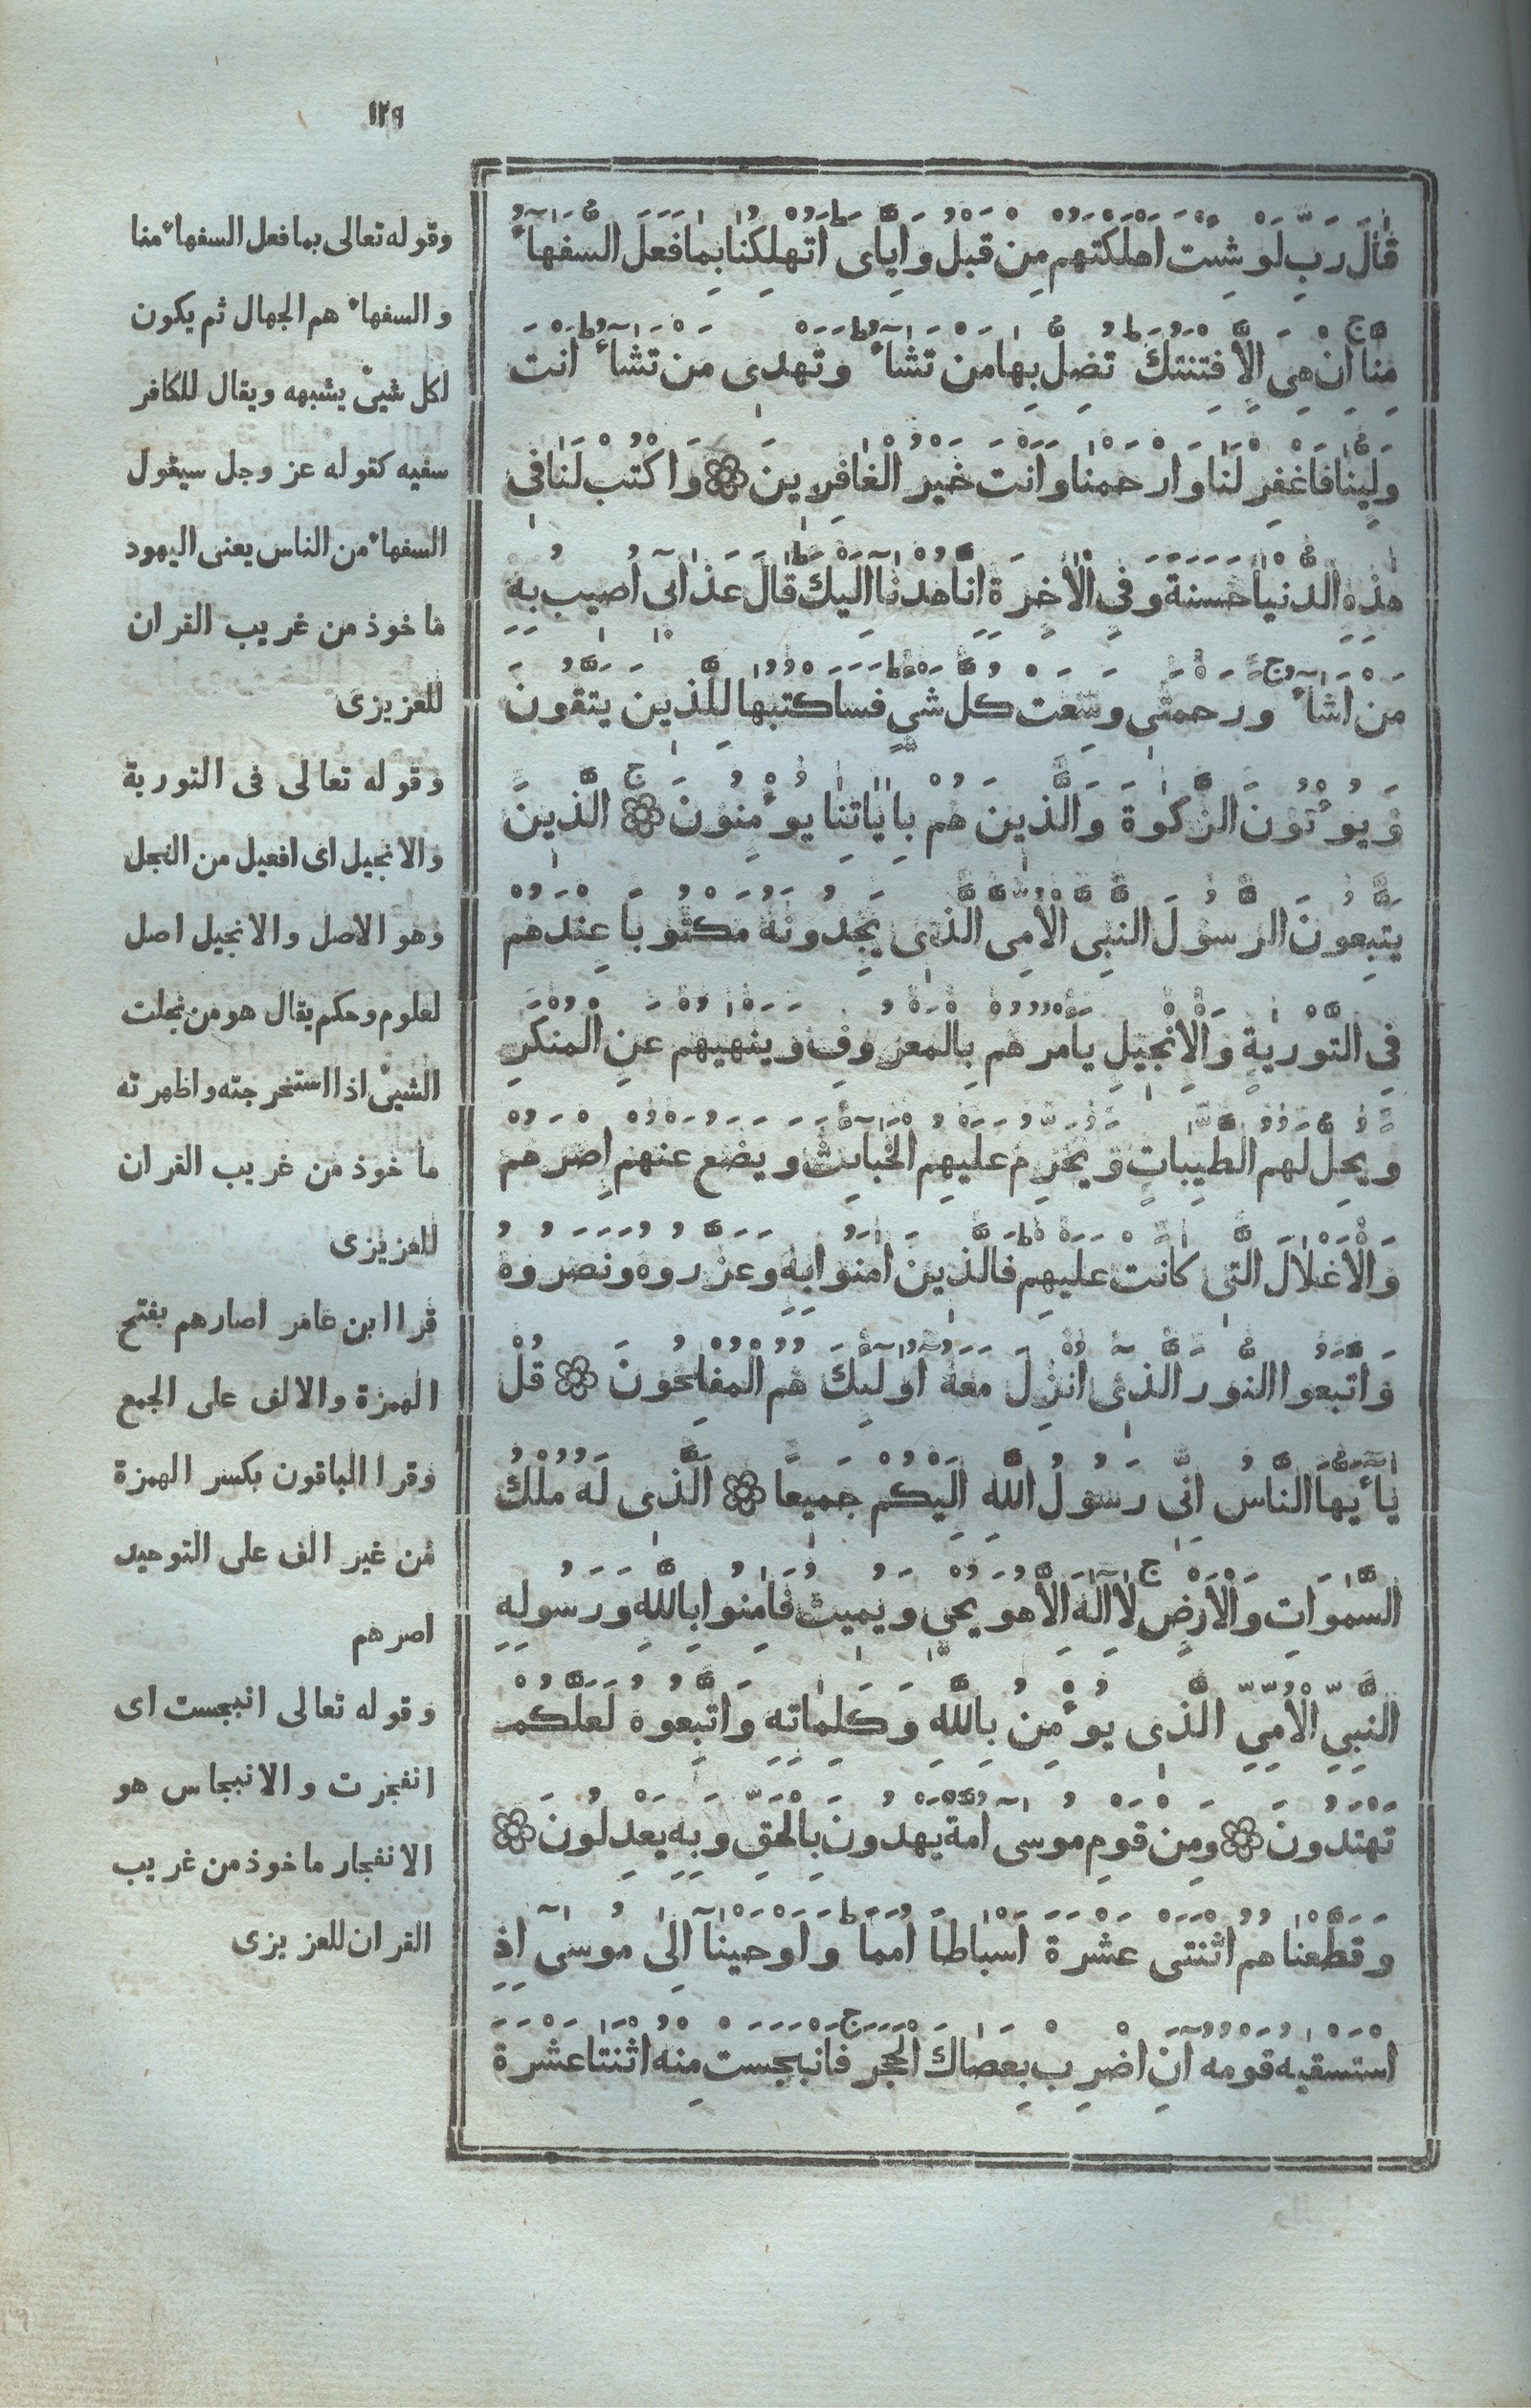 ١٢٩
قَالَ رَبِّ لَوْ شِئْتَ اَهْلَكْتَهُمْ مِنْ قَبْلُ وَاِيَّاىَ ط اَتُهْلِكُنَا بِمَا فَعَلَ السُّفَهَآءُ
مِنَّا ج اِنْ هِىَ اِلَّا فِتْنَتُكَ ط تُضِلُّ بِهَا مَنْ تَشَآءُ ط وَتَهْدِى مَنْ تَشَآءُ ط اَنْتَ
وَلِيُّنَا فَاغْفِرْ لَنَا وَارْحَمْنَا وَاَنْتَ خَيْرُ الْغَافِرِينَ ۝ وَاكْتُبْ لَنَا فِى
هٰذِهِ الدُّنْيَا حَسَنَةً وَفِى الْاٰخِرَةِ اِنَّا هُدْنَآ اِلَيْكَ ط قَالَ عَذَابِىٓ اُصِيبُ بِهِ
مَنْ اَشَآءُ ج وَرَحْمَتِى وَسِعَتْ كُلَّ شَىْءٍ ط فَسَاَكْتُبُهَا لِلَّذِينَ يَتَّقُونَ
وَيُؤْتُونَ الزَّكٰوةَ وَالَّذِينَ هُمْ بِاٰيَاتِنَا يُؤْمِنُونَ ج ۝ الَّذِينَ
يَتَّبِعُونَ الرَّسُولَ النَّبِىَّ الْاُمِّىَّ الَّذِى يَجِدُونَهُ مَكْتُوبًا عِنْدَهُمْ
فِى التَّوْرٰيةِ وَالْاِنْجِيلِ يَاْمُرُهُمْ بِالْمَعْرُوفِ وَيَنْهٰيهُمْ عَنِ الْمُنْكَرِ
وَيُحِلُّ لَهُمُ الطَّيِّبَاتِ وَيُحَرِّمُ عَلَيْهِمُ الْخَبَآئِثَ وَيَضَعُ عَنْهُمْ اِصْرَهُمْ
وَالْاَغْلَالَ الَّتِى كَانَتْ عَلَيْهِمْ ط فَالَّذِينَ اٰمَنُوا بِهِ وَعَزَّرُوهُ وَنَصَرُوهُ
وَاتَّبَعُوا النُّورَ الَّذِىٓ اُنْزِلَ مَعَهُٓ اُولٰٓئِكَ هُمُ الْمُفْلِحُونَ ۝ قُلْ
يَآ اَيُّهَا النَّاسُ اِنِّى رَسُولُ اللّٰهِ اِلَيْكُمْ جَمِيعًا ۝ الَّذِى لَهُ مُلْكُ
السَّمٰوَاتِ وَالْاَرْضِ ج لَآ اِلٰهَ اِلَّا هُوَ يُحْيِ وَيُمِيتُ فَاٰمِنُوا بِاللّٰهِ وَرَسُولِهِ
النَّبِىِّ الْاُمِّىِّ الَّذِى يُؤْمِنُ بِاللّٰهِ وَكَلِمَاتِهِ وَاتَّبِعُوهُ لَعَلَّكُمْ
تَهْتَدُونَ ۝ وَمِنْ قَوْمِ مُوسٰىٓ اُمَّةٌ يَهْدُونَ بِالْحَقِّ وَبِهِ يَعْدِلُونَ ۝
وَقَطَّعْنَاهُمُ اثْنَتَىْ عَشْرَةَ اَسْبَاطًا اُمَمًا ط وَاَوْحَيْنَآ اِلٰى مُوسٰىٓ اِذِ
اسْتَسْقٰيهُ قَوْمُهُٓ اَنِ اضْرِبْ بِعَصَاكَ الْحَجَرَ ج فَانْبَجَسَتْ مِنْهُ اثْنَتَا عَشْرَةَ
وقوله تعالى بما فعل السفهاء منا
والسفهاء هم الجهال ثم يكون
لكل شيئ يشبهه ويقال للكافر
سفيه كقوله عز وجل سيقول
السفهاء من الناس يعنى اليهود
ماخوذ من غريب القران
للعزيزى
وقوله تعالى فى التورية
والانجيل اى افعيل من النجل
وهو الاصل والانجيل اصل
لعلوم وحكم يقال هو من نجلت
الشيئ اذا استخرجته واظهرته
ماخوذ من غريب القران
للعزيزى
قرا ابن عامر اصارهم بفتح
الهمزة والالف على الجمع
وقرا الباقون بكسر الهمزة
من غير الف على التوحيد
اصرهم
وقوله تعالى انبجست اى
انفجرت والانبجاس هو
الانفجار ماخوذ من غريب
القران للعزيزى